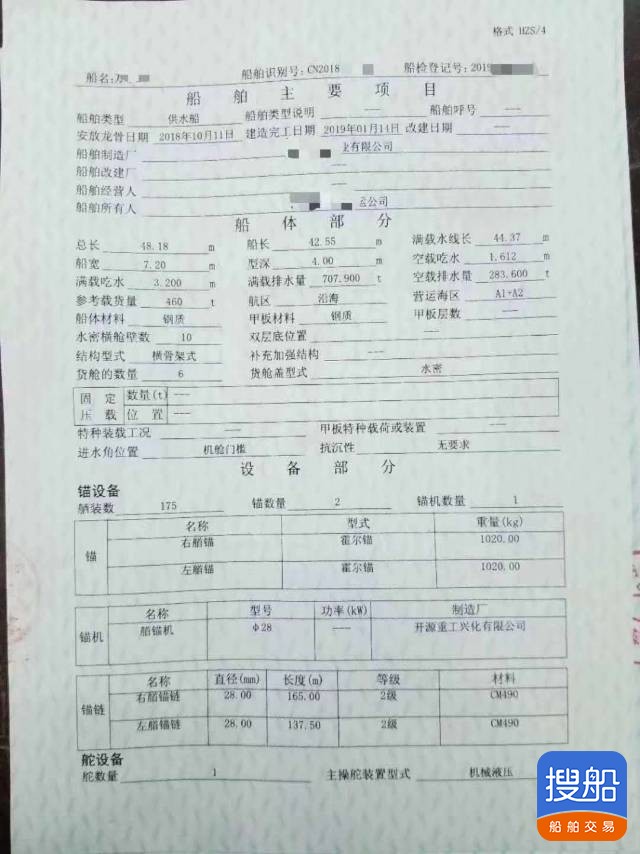 格式 HZS/4
船名: 船舶识别号: CN2018 船检登记号: 2019
船舶主要项目
船舶类型 供水船 船舶类型说明 --- 船舶呼号 ---
安放龙骨日期 2018年10月11日 建造完工日期 2019年01月14日 改建日期 ---
船舶制造厂 业有限公司
船舶改建厂 ---
船舶经营人 ---
船舶所有人 公司
船体部分
总长 48.18 m 船长 42.55 m 满载水线长 44.37 m
船宽 7.20 m 型深 4.00 m 空载吃水 1.612 m
满载吃水 3.200 m 满载排水量 707.900 t 空载排水量 283.600 t
参考载货量 460 t 航区 沿海 营运海区 A1+A2
船体材料 钢质 甲板材料 钢质 甲板层数 ---
水密横舱壁数 10 双层底位置 ---
结构型式 横骨架式 补充加强结构 ---
货舱的数量 6 货舱盖型式 水密
固定压载 数量(t) ---
位置 ---
特种装载工况 --- 甲板特种载荷或装置 ---
进水角位置 机舱门槛 抗沉性 无要求
设备部分
锚设备
舾装数 175 锚数量 2 锚机数量 1
锚 名称 型式 重量(kg)
右艏锚 霍尔锚 1020.00
左艏锚 霍尔锚 1020.00
锚机 名称 型号 功率(kW) 制造厂
艏锚机 Φ28 --- 开源重工兴化有限公司
锚链 名称 直径(mm) 长度(m) 等级 材料
右艏锚链 28.00 165.00 2级 CM490
左艏锚链 28.00 137.50 2级 CM490
舵设备
舵数量 1 主操舵装置型式 机械液压
搜船
船舶交易